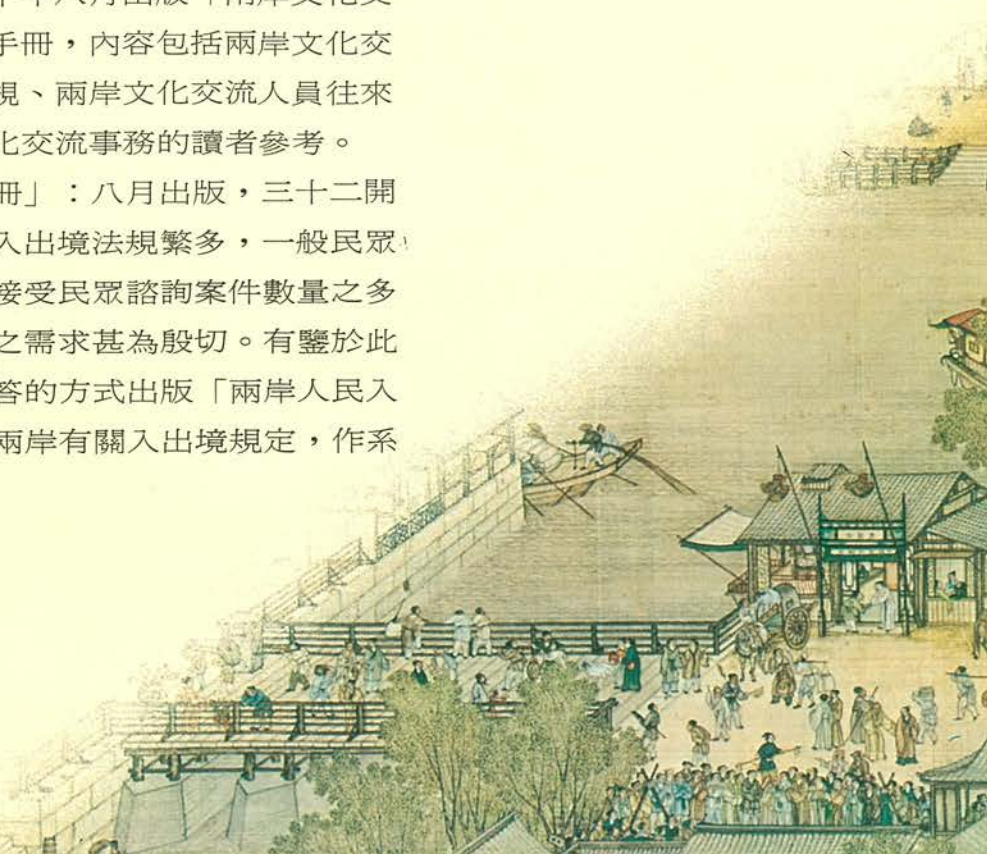 手冊，內容包括兩岸文化交
視、兩岸文化交流人員往來
化交流事務的讀者參考。
冊」：八月出版，三十二開
入出境法規繁多，一般民眾
接受民眾諮詢案件數量之多
之需求甚為殷切。有鑒於此
答的方式出版「兩岸人民入
兩岸有關入出境規定，作系